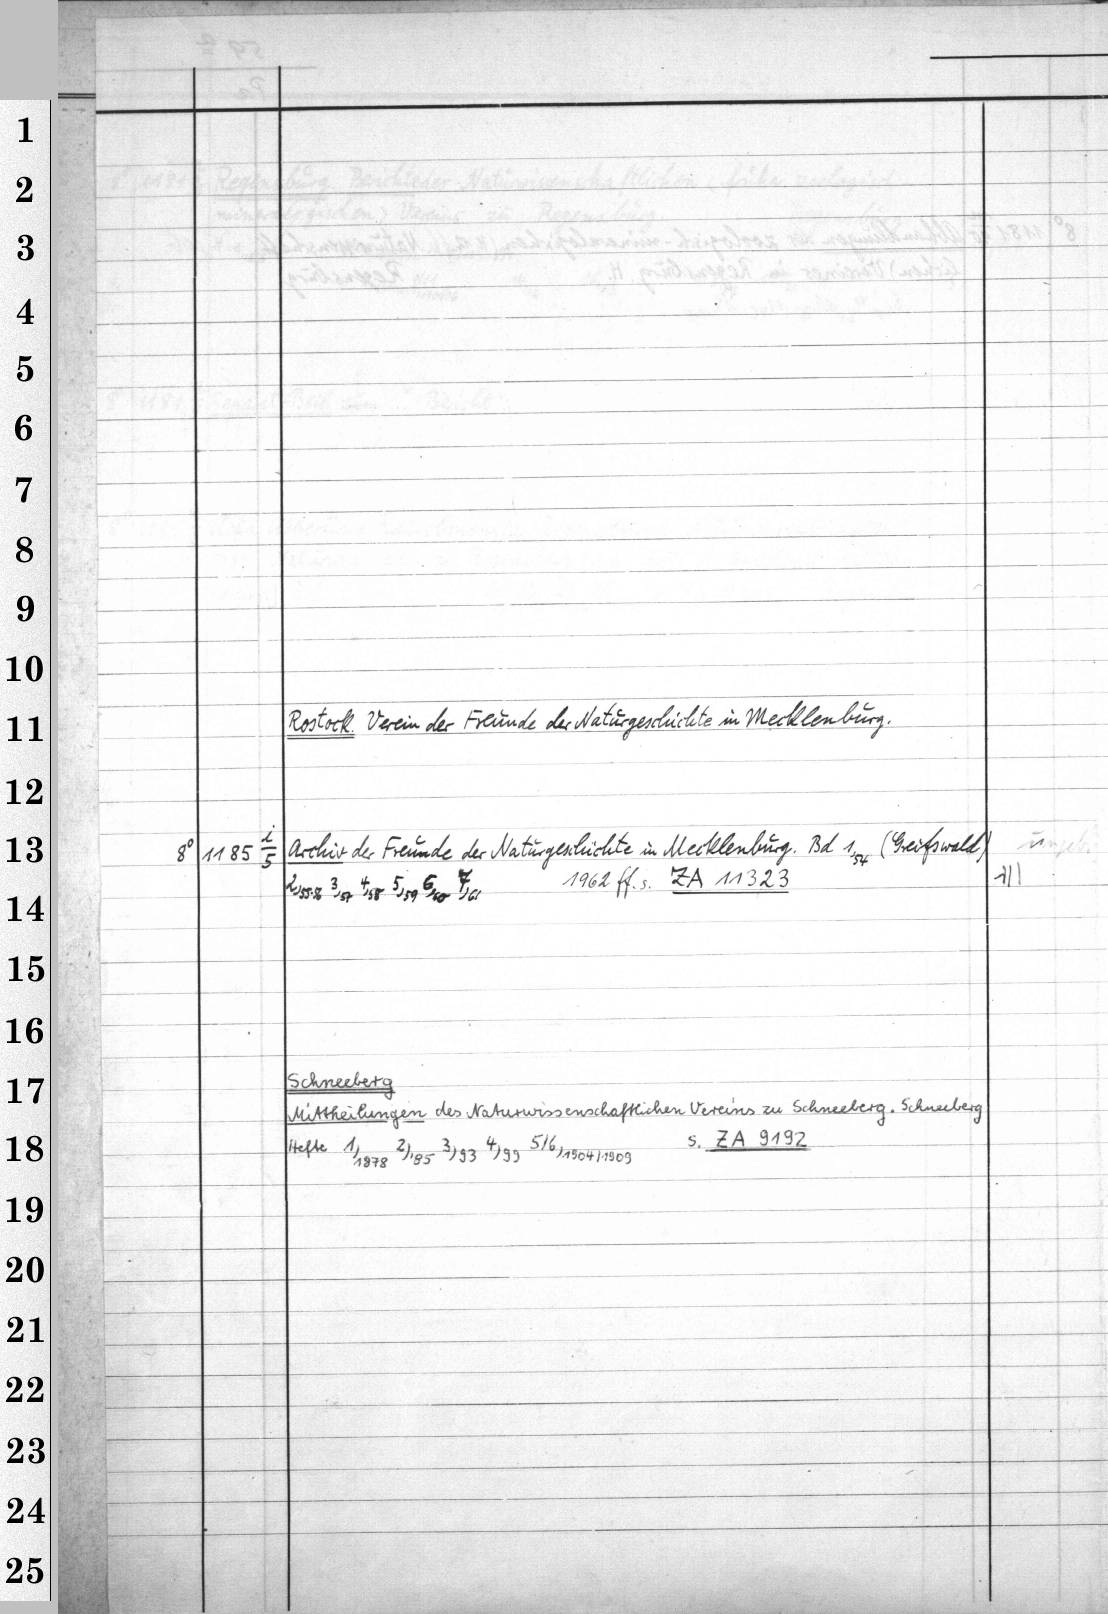 1
2
3
4
5
6
7
8
9
10
11 Rostock. Verein der Freunde der Naturgeschichte in Mecklenburg.
12
13 8° 1185 i/5 Archiv der Freunde der Naturgeschichte in Mecklenburg. Bd 1,54 (Greifswald)
2,55-56 3,57 4,58 5,59 6,60 7,61 1962 ff. s. ZA 11323
14
15
16
17 Schneeberg
Mittheilungen des Naturwissenschaftlichen Vereins zu Schneeberg. Schneeberg
18 Hefte 1,1878 2,85 3,93 4,99 5/6,1904/1909 s. ZA 9192
19
20
21
22
23
24
25